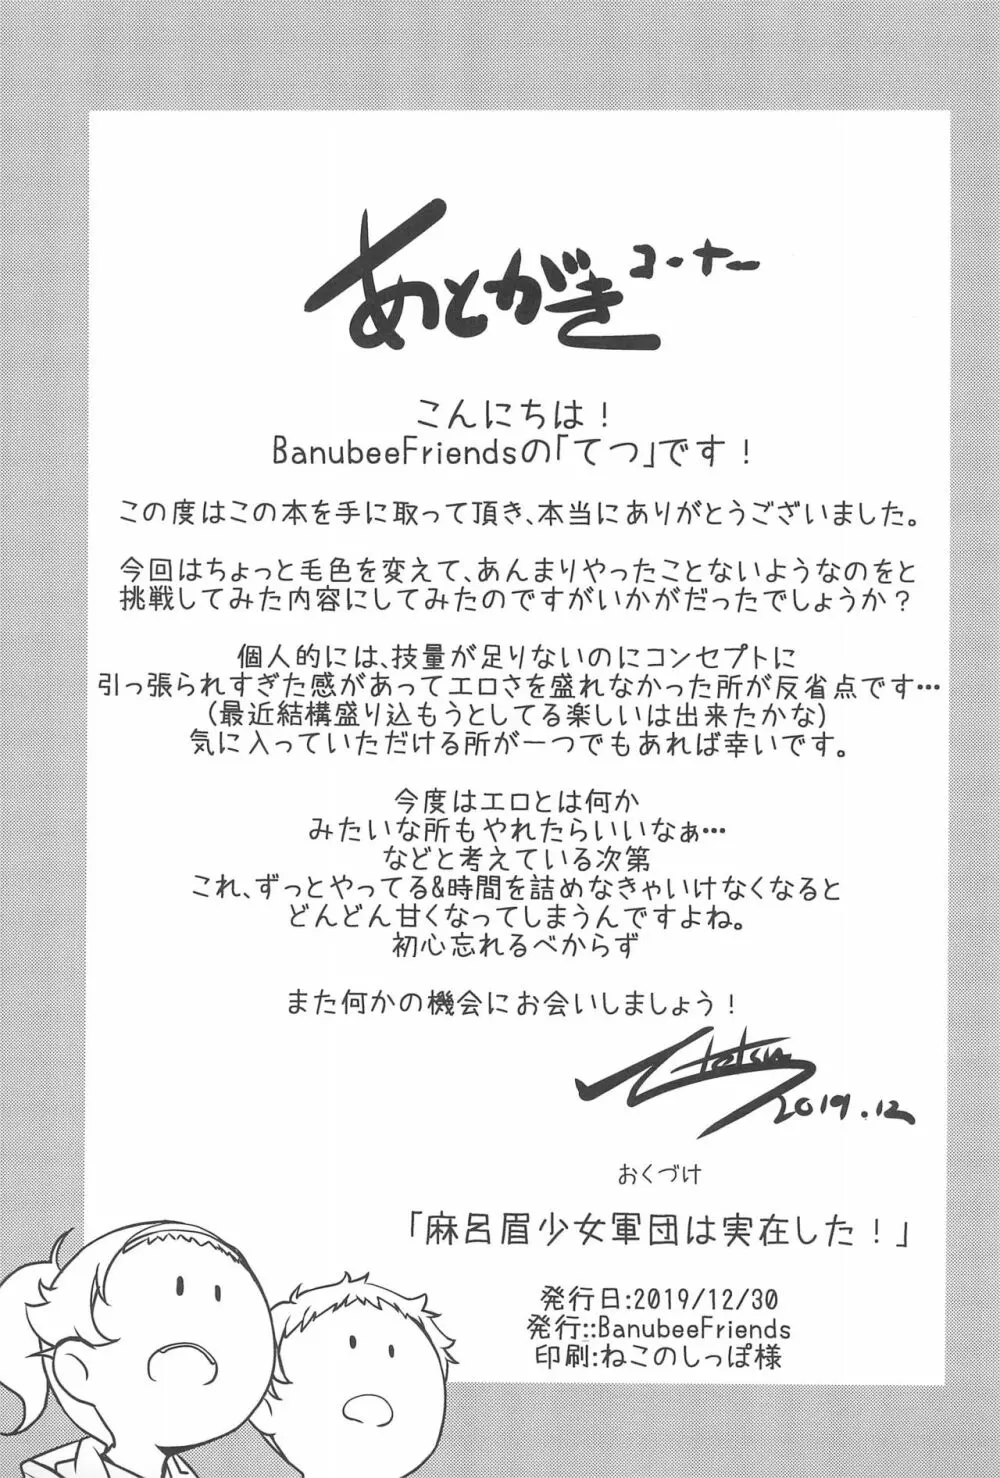 あとがきコーナー
こんにちは！
BanubeeFriendsの「てつ」です！
この度はこの本を手に取って頂き、本当にありがとうございました。
今回はちょっと毛色を変えて、あんまりやったことないようなのをと
挑戦してみた内容にしてみたのですがいかがだったでしょうか？
個人的には、技量が足りないのにコンセプトに
引っ張られすぎた感があってエロさを盛れなかった所が反省点です…
(最近結構盛り込もうとしてる楽しいは出来たかな)
気に入っていただける所が一つでもあれば幸いです。
今度はエロとは何か
みたいな所もやれたらいいなぁ…
などと考えている次第
これ、ずっとやってる&時間を詰めなきゃいけなくなると
どんどん甘くなってしまうんですよね。
初心忘れるべからず
また何かの機会にお会いしましょう！
2019.12
おくづけ
「麻呂眉少女軍団は実在した！」
発行日:2019/12/30
発行::BanubeeFriends
印刷:ねこのしっぽ様